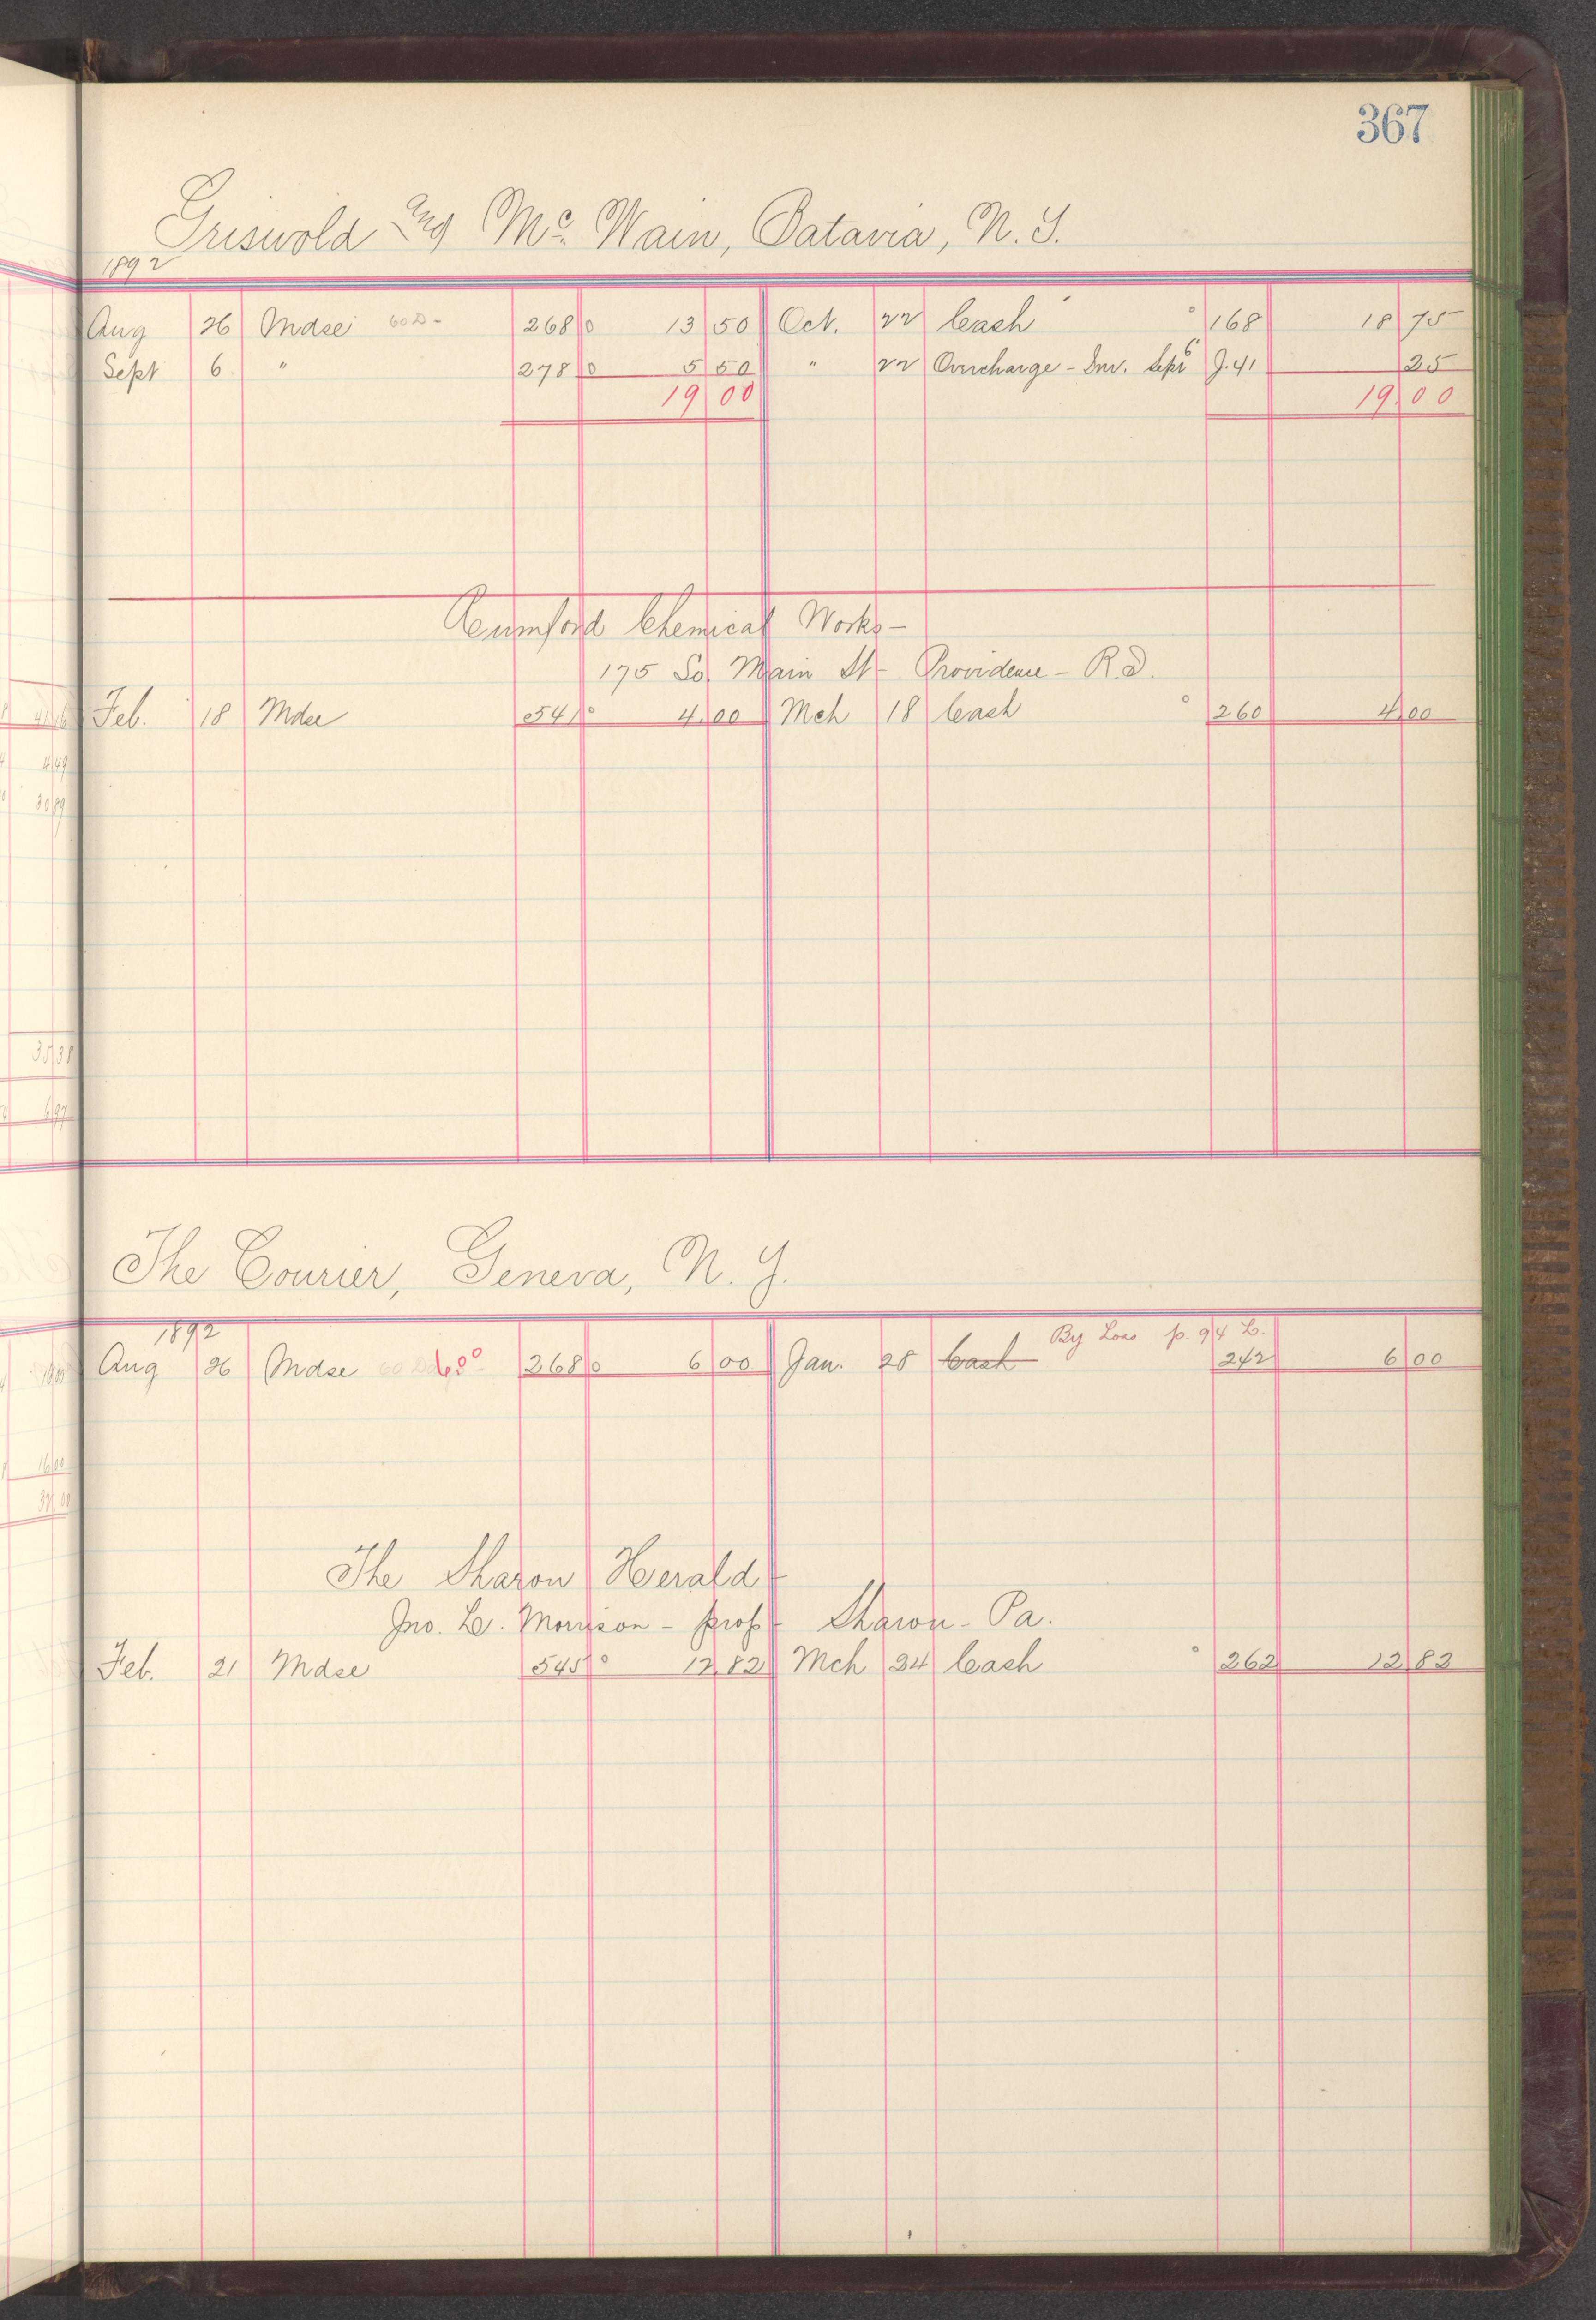 367
Griswold and Mc. Wain, Batavia, N. Y.
1892
Aug 26 Mdse 60 D- 268 0 13 50 Oct. 22 Cash 168 18 75
Sept 6 " 278 0 5 50 " 22 Overcharge - Inv. Sept 6 J. 41 25
19 00 19 00
Rumford Chemical Works -
175 So. Main St - Providence - R.I.
Feb. 18 Mdse 541 0 4 00 Mch 18 Cash 260 4 00
4 49
30 89
35 38
6 97
The Courier, Geneva, N. Y.
1892 By Loss p. 94 L.
Aug 26 Mdse 60 D 268 0 6 00 Jan. 28 Cash 242 6 00
16 00
The Sharon Herald -
Jno. L. Morrison - prop - Sharon - Pa.
Feb. 21 Mdse 545 0 12 82 Mch 24 Cash 262 12 82